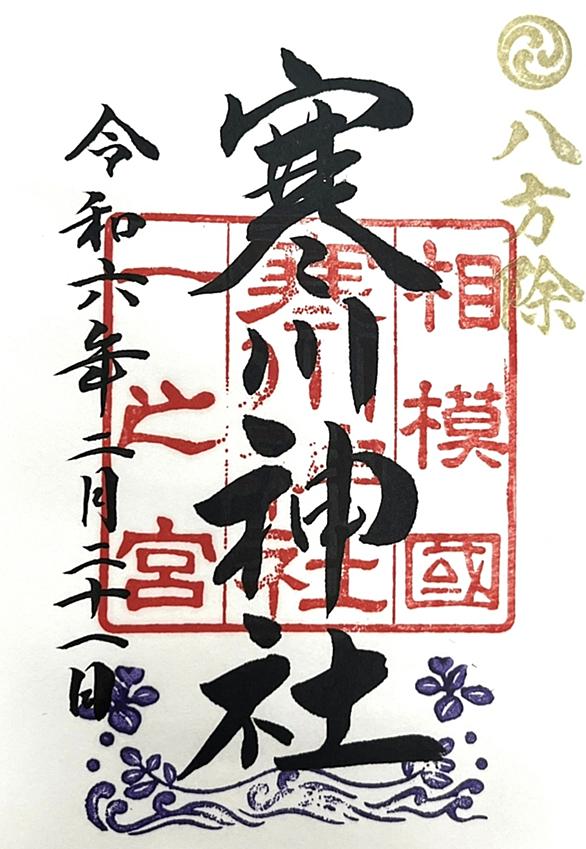 八方除
相模國
寒川神社
一之宮
寒川神社
令和六年二月二十八日